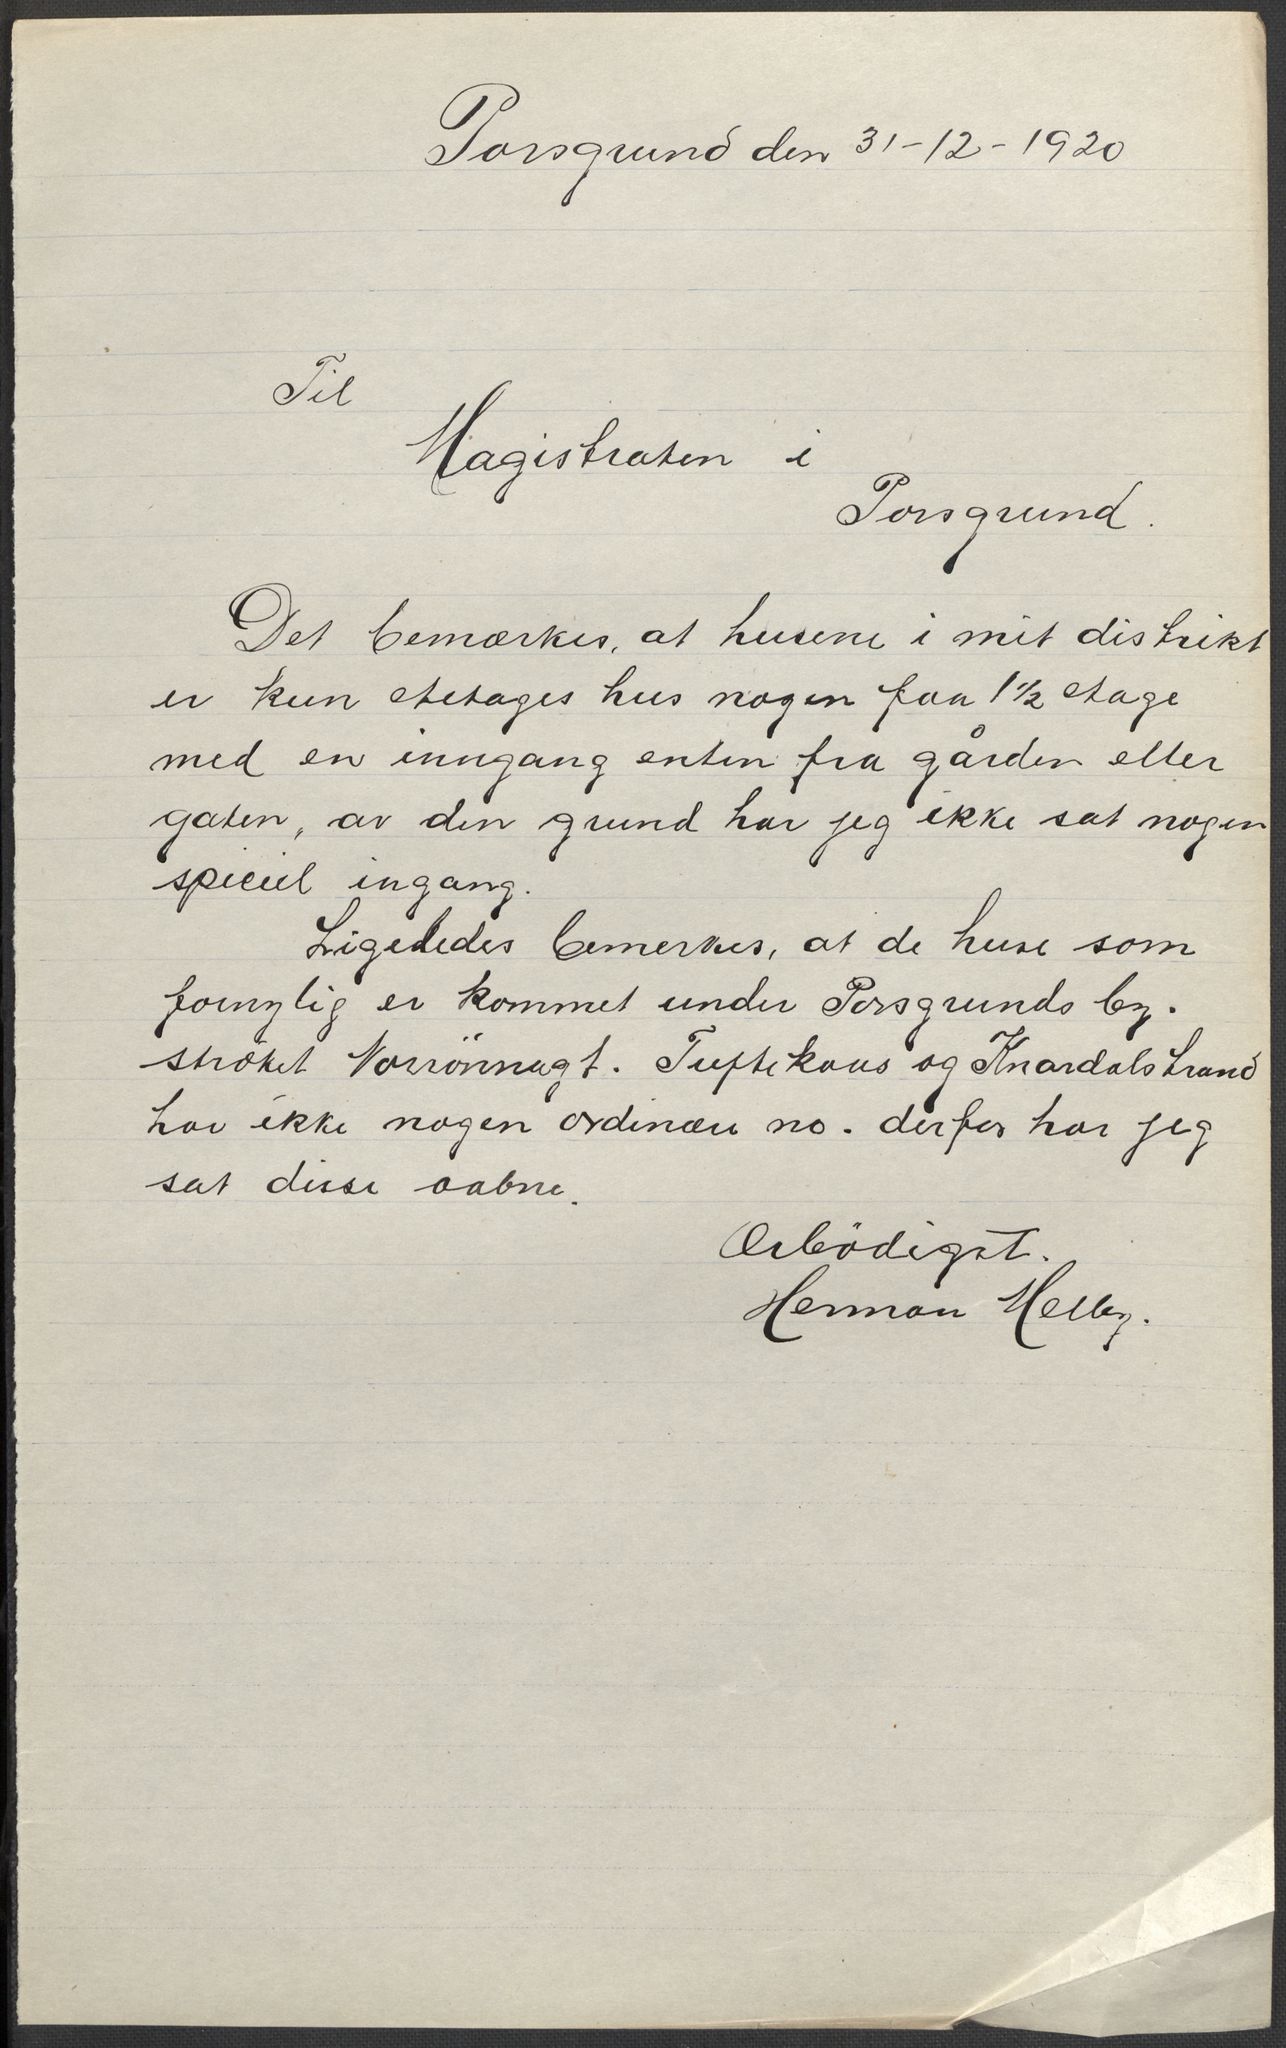 Porsgrund den 31-12-1920
Til
Magistraten i
Porsgrund.
Det bemærkes, at husene i mit distrikt
er kun etetages hus nogen faa 1½ etage
med en inngang enten fra gården eller
gaten, av den grund har jeg ikke sat nogen
speciel ingang.
Ligeledes bemerkes, at de huse som
fornylig er kommet under Porsgrunds by.
ströket Tuftekaas og Knardalstrand
har ikke nogen ordinær no. derfor har jeg
sat disse aabne.
Ærbödigst.
Herman Melby.